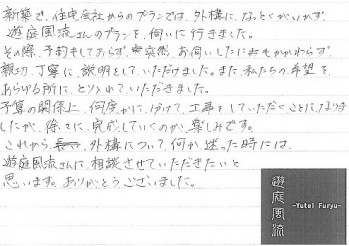 新築で、住宅会社からのプランでは、外構に、なっとくがいかず、
遊庭風流さんのプランを、伺いに行きました。
その際、予約もしておらず、突然、お伺いしたにもかかわらず、
親切、丁寧に、説明をしていただけました。また、私たちの希望を、
あらゆる所に、とり入れていただきました。
予算の関係上、何度かに、分けて、工事をしていただくことになりま
したが、徐々に、完成していくのが、楽しみです。
これから、外構について、何か迷った時には、
遊庭風流さんに、相談させていただきたいと
思います。ありがとうございました。
遊庭風流
-Yutei Furyu-